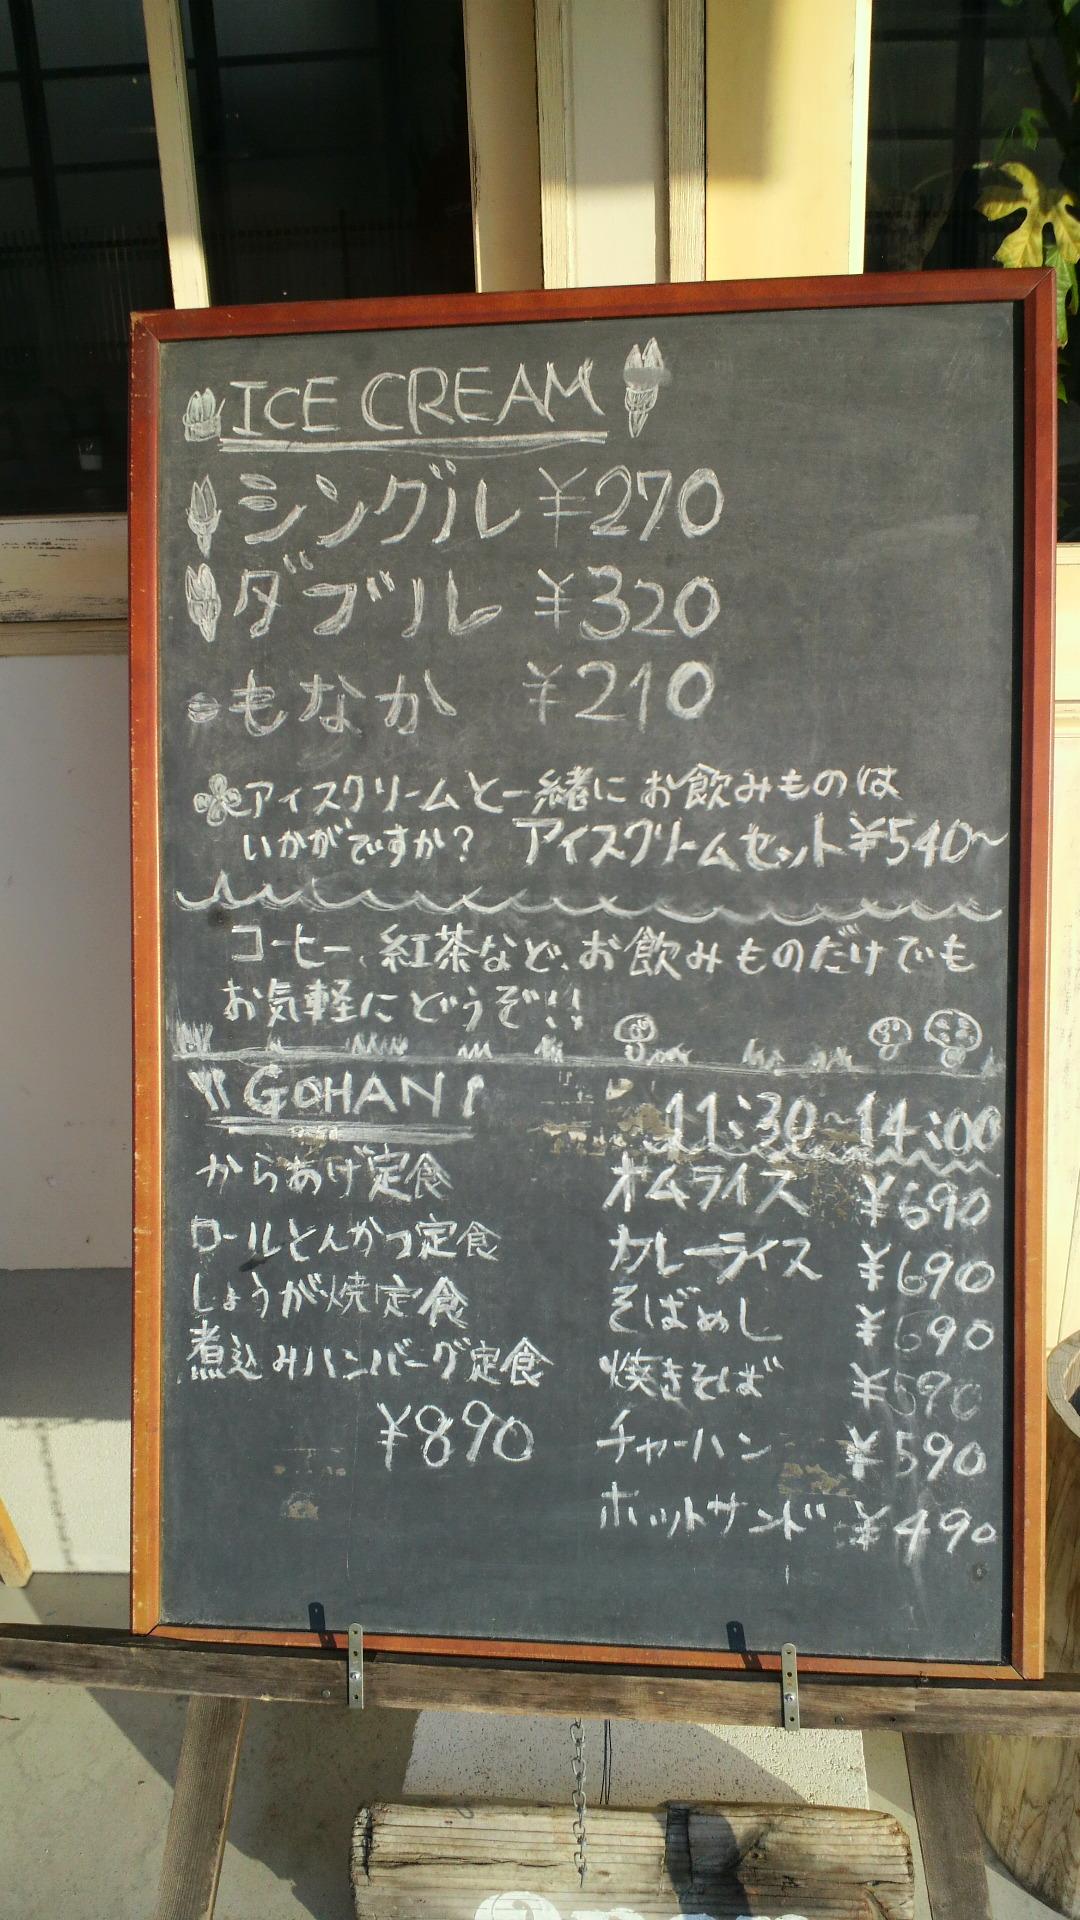 ICE CREAM
シングル ¥270
ダブル ¥320
もなか ¥210
アイスクリームと一緒にお飲みものは
いかがですか? アイスクリームセット¥540~
コーヒー、紅茶など、お飲みものだけでも
お気軽にどうぞ!!
GOHAN
11:30~14:00
からあげ定食
ロールとんかつ定食
しょうが焼定食
煮込みハンバーグ定食
¥890
オムライス ¥690
カレーライス ¥690
そばめし ¥690
焼きそば ¥590
チャーハン ¥590
ホットサンド ¥490